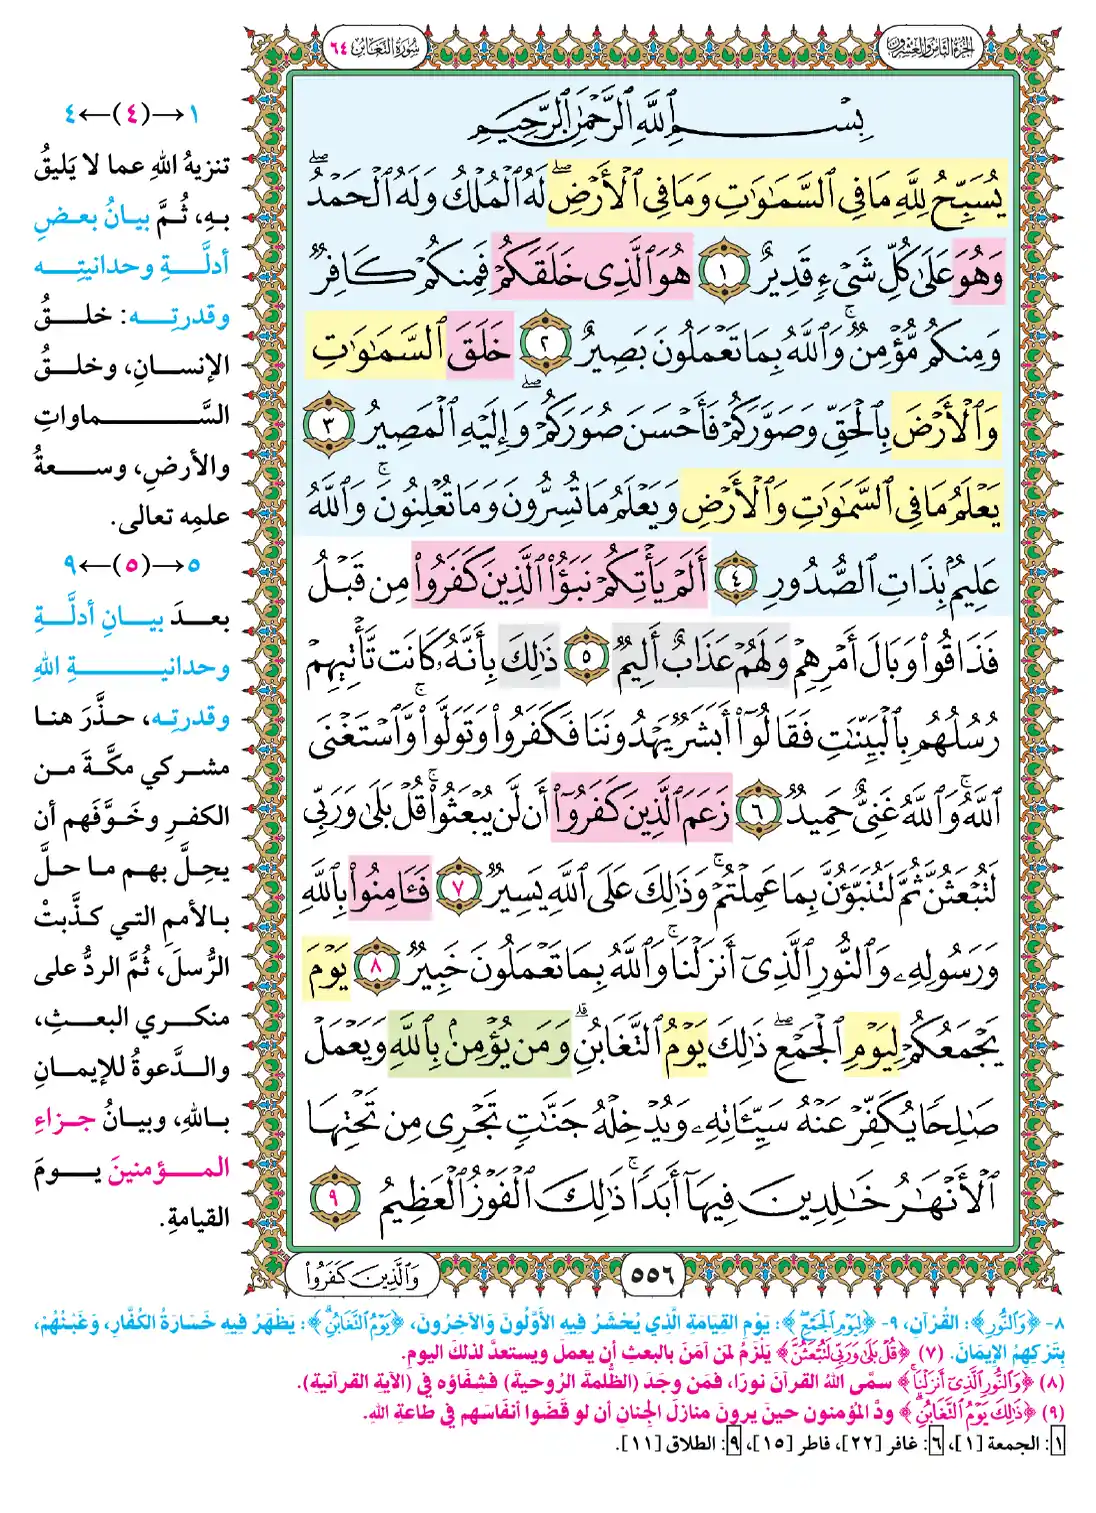 الجزء الثامن والعشرون
سورة التغابن ٦٤
بِسْمِ اللَّهِ الرَّحْمَٰنِ الرَّحِيمِ
يُسَبِّحُ لِلَّهِ مَا فِي السَّمَٰوَٰتِ وَمَا فِي الْأَرْضِ ۖ لَهُ الْمُلْكُ وَلَهُ الْحَمْدُ ۖ
وَهُوَ عَلَىٰ كُلِّ شَيْءٍ قَدِيرٌ ١ هُوَ الَّذِي خَلَقَكُمْ فَمِنكُمْ كَافِرٌ
وَمِنكُم مُّؤْمِنٌ ۚ وَاللَّهُ بِمَا تَعْمَلُونَ بَصِيرٌ ٢ خَلَقَ السَّمَٰوَٰتِ
وَالْأَرْضَ بِالْحَقِّ وَصَوَّرَكُمْ فَأَحْسَنَ صُوَرَكُمْ ۖ وَإِلَيْهِ الْمَصِيرُ ٣
يَعْلَمُ مَا فِي السَّمَٰوَٰتِ وَالْأَرْضِ وَيَعْلَمُ مَا تُسِرُّونَ وَمَا تُعْلِنُونَ ۚ وَاللَّهُ
عَلِيمٌ بِذَاتِ الصُّدُورِ ٤ أَلَمْ يَأْتِكُمْ نَبَؤُا۟ الَّذِينَ كَفَرُوا۟ مِن قَبْلُ
فَذَاقُوا۟ وَبَالَ أَمْرِهِمْ وَلَهُمْ عَذَابٌ أَلِيمٌ ٥ ذَٰلِكَ بِأَنَّهُ كَانَت تَّأْتِيهِمْ
رُسُلُهُم بِالْبَيِّنَٰتِ فَقَالُوٓا۟ أَبَشَرٌ يَهْدُونَنَا فَكَفَرُوا۟ وَتَوَلَّوا۟ ۚ وَّاسْتَغْنَى
اللَّهُ ۚ وَاللَّهُ غَنِيٌّ حَمِيدٌ ٦ زَعَمَ الَّذِينَ كَفَرُوٓا۟ أَن لَّن يُبْعَثُوا۟ ۚ قُلْ بَلَىٰ وَرَبِّي
لَتُبْعَثُنَّ ثُمَّ لَتُنَبَّؤُنَّ بِمَا عَمِلْتُمْ ۚ وَذَٰلِكَ عَلَى اللَّهِ يَسِيرٌ ٧ فَـَٔامِنُوا۟ بِاللَّهِ
وَرَسُولِهِۦ وَالنُّورِ الَّذِيٓ أَنزَلْنَا ۚ وَاللَّهُ بِمَا تَعْمَلُونَ خَبِيرٌ ٨ يَوْمَ
يَجْمَعُكُمْ لِيَوْمِ الْجَمْعِ ۖ ذَٰلِكَ يَوْمُ التَّغَابُنِ ۗ وَمَن يُؤْمِنۢ بِاللَّهِ وَيَعْمَلْ
صَٰلِحًا يُكَفِّرْ عَنْهُ سَيِّـَٔاتِهِۦ وَيُدْخِلْهُ جَنَّٰتٍ تَجْرِي مِن تَحْتِهَا
الْأَنْهَٰرُ خَٰلِدِينَ فِيهَآ أَبَدًا ۚ ذَٰلِكَ الْفَوْزُ الْعَظِيمُ ٩
١→(٤)←٤
تنزيهُ اللهِ عما لا يَليقُ
بهِ، ثُمَّ بيانُ بعضِ
أدلَّةِ وحدانيتِه
وقدرتِه: خلقُ
الإنسانِ، وخلقُ
السَّماواتِ
والأرضِ، وسعةُ
علمِه تعالى.
٥→(٥)←٩
بعدَ بيانِ أدلَّةِ
وحدانيةِ اللهِ
وقدرتِه، حذَّرَ هنا
مشركي مكَّةَ من
الكفرِ وخوَّفَهم أن
يحِلَّ بهم ما حلَّ
بالأممِ التي كذَّبتْ
الرُّسلَ، ثُمَّ الردُّ على
منكري البعثِ،
والدَّعوةُ للإيمانِ
باللهِ، وبيانُ جزاءِ
المؤمنينَ يومَ
القيامةِ.
وَالَّذِينَ كَفَرُوا۟
٥٥٦
٨- ﴿وَالنُّورِ﴾: القُرْآنِ، ٩- ﴿لِيَوْمِ الْجَمْعِ ۖ﴾: يَوْمِ القِيَامَةِ الَّذِي يُحْشَرُ فِيهِ الأَوَّلُونَ وَالآخِرُونَ، ﴿يَوْمُ التَّغَابُنِ ۗ﴾: يَظْهَرُ فِيهِ خَسَارَةُ الكُفَّارِ، وَغَبْنُهُمْ،
بِتَرْكِهِمُ الإِيمَانَ. (٧) ﴿قُلْ بَلَىٰ وَرَبِّي لَتُبْعَثُنَّ﴾ يَلْزَمُ لمَن آمَنَ بالبعثِ أن يعملَ ويستعدَّ لذلكَ اليومِ.
(٨) ﴿وَالنُّورِ الَّذِيٓ أَنزَلْنَا ۚ﴾ سمَّى اللهُ القرآنَ نورًا، فمَن وجَدَ (الظُّلمةَ الرُّوحيةَ) فشِفَاؤه في (الآيةِ القرآنيةِ).
(٩) ﴿ذَٰلِكَ يَوْمُ التَّغَابُنِ ۗ﴾ ودَّ المُؤمنون حينَ يرونَ منازلَ الجِنانِ أن لو قَضَوا أنفاسَهم في طاعةِ اللهِ.
١: الجمعة [١]، ٦: غافر [٢٢]، فاطر [١٥]، ٩: الطلاق [١١].